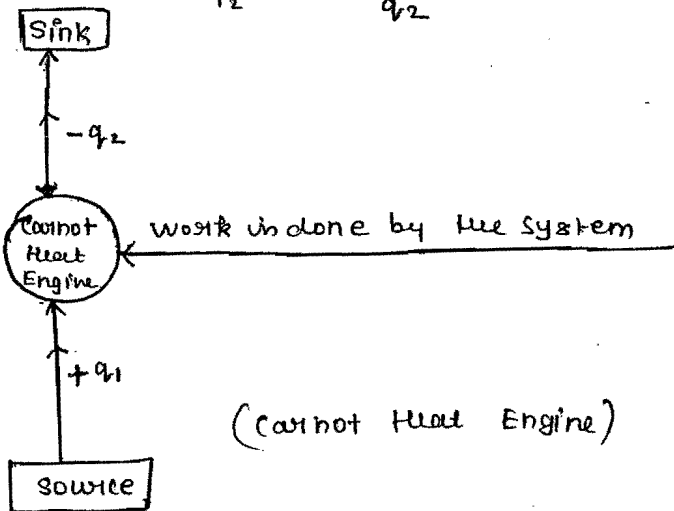 q2
Sink
-q2
Carnot
Heat
Engine
work is done by the system
+q1
(Carnot Heat Engine)
Source